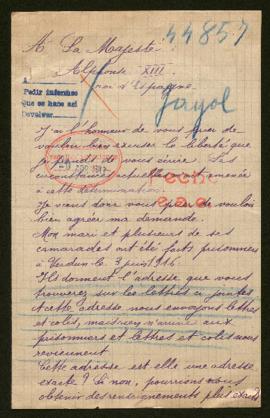 44857
A Sa Majesté
Alphonse XIII
roi d'Espagne
1
Pedir informes
Que se hace así
Devolver
Jayol
J'ai l'honneur de vous prier de
vouloir bien excuser la liberté que
je prends de vous écrire. Les
circonstances actuelles m'ont amenée
à cette détermination.
Je viens donc vous prier de vouloir
bien agréer ma demande.
Mon mari et plusieurs de ses
camarades ont été faits prisonniers
à Verdun le 3 juin 1916
Ils donnent l'adresse que vous
trouverez sur les lettres ci jointes
A cette adresse nous envoyons lettres
et colis, mais rien n'arrive aux
prisonniers et lettres et colis nous
reviennent.
Cette adresse est elle une adresse
exacte? Si non, pourrions nous
obtenir des renseignements plus exacts